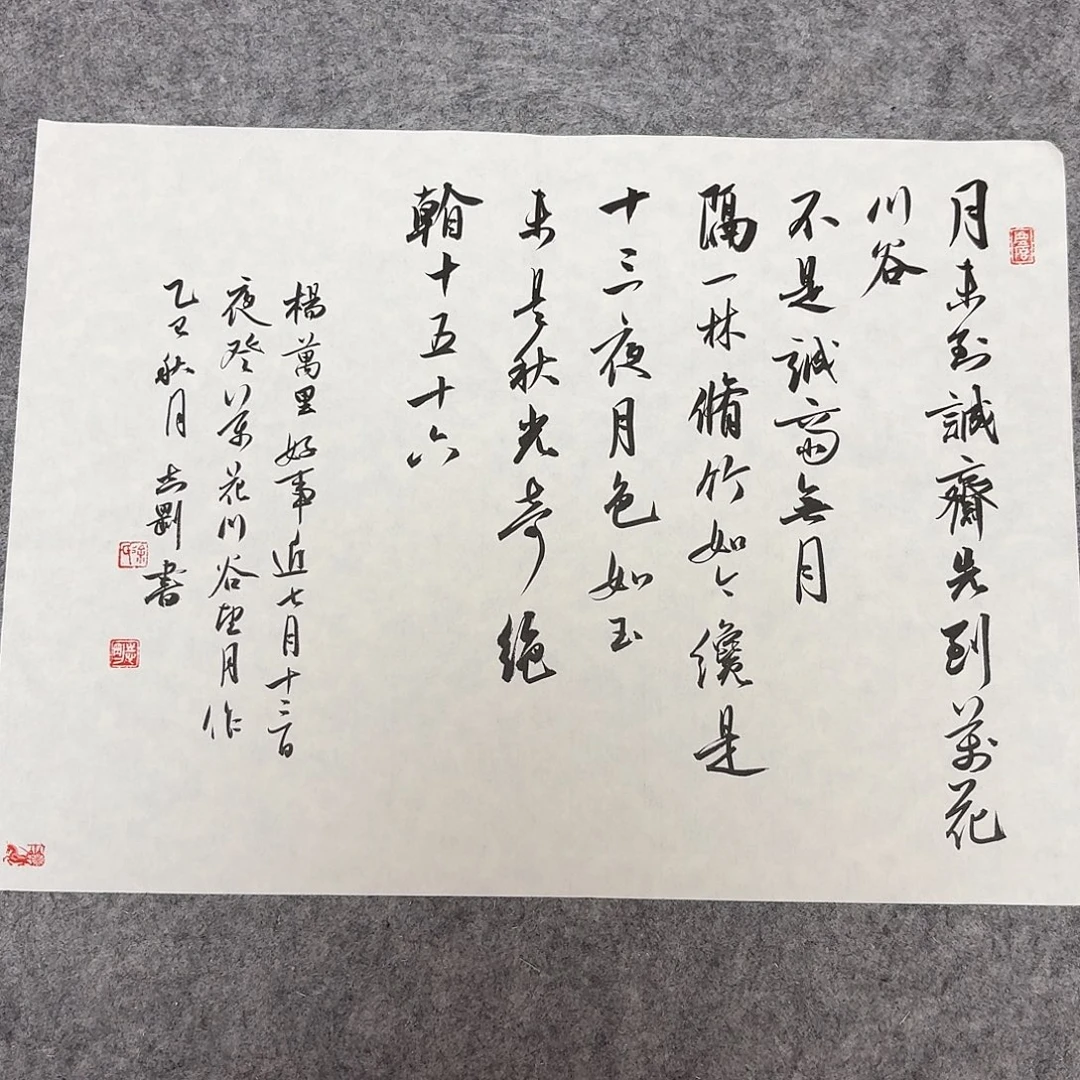 月未到誠齋先到萬花
川谷
不是誠齋無月
隔一林脩竹如今纔是
十三夜月色如玉
未是秋光奇絕
十五十六
楊萬里好事近七月十三日
夜登萬花川谷望月作
乙巳秋月志剛書